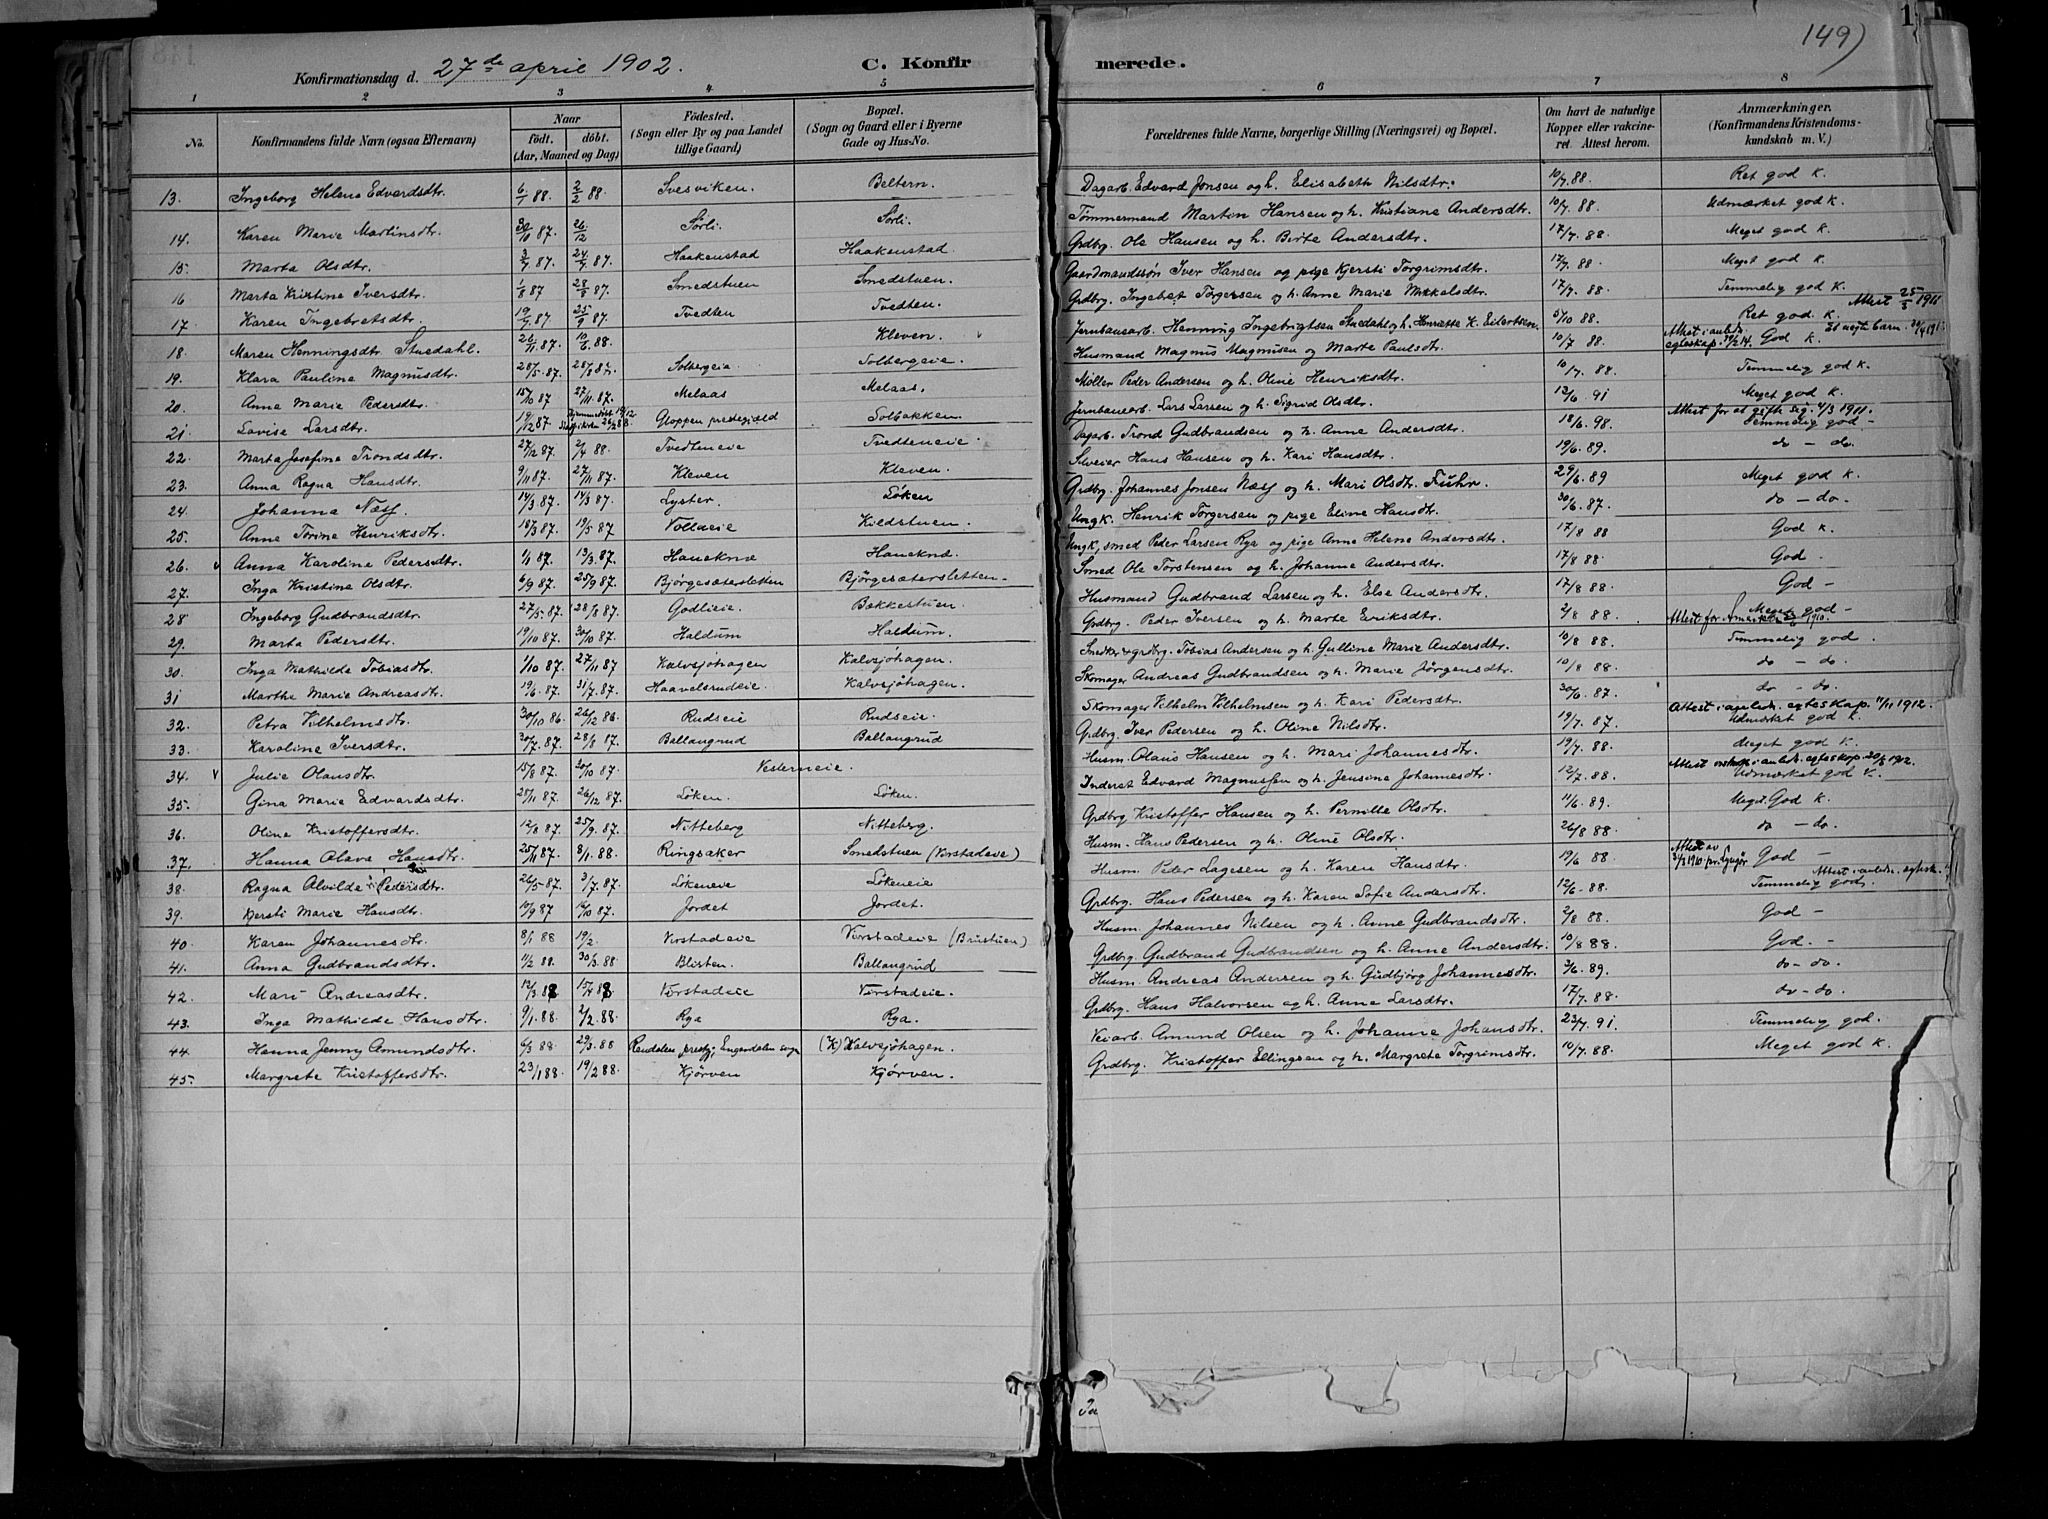 149)
Konfirmationsdag d. 27de april 1902. C. Konfirmerede.
1 2 3 4 5 6 7 8
No. Konfirmandens fulde Navn (ogsaa Efternavn) Naar Født. døbt. (Aar, Maaned og Dag) Fødested. (Sogn eller By og paa Landet tillige Gaard) Bopæl. (Sogn og Gaard eller i Byerne Gade og Hus-No. Forældrenes fulde Navne, borgerlige Stilling (Næringsvei) og Bopæl. Om havt de naturlige Kopper eller vakcineret. Attest herom. Anmærkninger. (Konfirmandens Kristendomskundskab m. V.)
13. Ingeborg Helene Edvardsdtr. 6/1 88. 2/2 88. Svesviken. Beltern. Dagarb. Edvard Jonsen og h. Elisabeth Nilsdtr. 10/7. 88. Ret god K.
14. Karen Marie Martinsdtr. 30/10 87. 26/12 Sørli. Sørli. Tømmermand Martin Hansen og h. Kristiane Andersdtr. 10/7. 88. Udmærket god K.
15. Marta Olsdtr. 3/7. 87. 24/7. 87. Haakenstad Haakenstad Grdbrg. Ole Hansen og h. Berte Andersdtr. 17/7. 88. Meget god K.
16 Marta Kristine Iversdtr. 1/8 87 28/8 87. Smedstuen Smedstuen. Gaardmandssøn Iver Hansen og pige Kjersti Torgrimsdtr. 17/7. 88. Meget god K.
17. Karen Ingebretsdtr. 19/7. 87. 25/9 87. Tvedten Tvedten. Grdbrg. Ingebret Torgersen og h. Anne Marie Mikkelsdtr. 17/7. 88. Temmelig god K. Attest 25/3 1911
18. Maren Henningsdtr Stuedahl. 26/11. 87. 10/6. 88. Kleven Jernbanearb. Henning Ingebrigtsen Stuedahl og h. Henriette K. Eilertsen. 5/10 88. Ret god K.
19. Klara Pauline Magnusdtr. 28/5. 87. 28/8 87. Solbergeia. Solbergeie. Husmand Magnus Magnusen og Marte Paulsdtr. 10/7 88. God K.
20. Anna Marie Pedersdtr. 15/10 87 27/11. 87. Melaas Melaas. Møller Peder Andersen og h. Oline Henriksdtr. 10/7. 88. Temmelig god K.
21. Lovise Larsdtr. 19/12 87 Gloppen prestegjæld Solbakken. Jernbanearb. Lars Larsen og h. Sigrid Olsdtr. 13/6. 91 Meget god K.
22. Marta Josefine Trondsdtr. 27/12 87. 2/4 88. Tvedteneie Tvedteneie. Dagarb. Trond Gudbrandsen og h. Anne Andersdtr. 18/6. 98. Attest for at gifte sig 4/3 1911. Temmelig god -
23. Anna Ragna Hansdtr. 9/11 87. 27/11 87. Kleven Kleven. Selveier Hans Hansen og h. Kari Hansdtr. 19/6. 89. do - do.
24. Johanna Næss. 14/3 87. 14/3 87. Lyster. Løken Grdbrg. Johannes Jonsen Næss og h. Mari Olsdtr. Fuhr. 29/6. 89 Meget god K.
25. Anne Torine Henriksdtr. 18/3 87. 19/5 87 Volldeie Kildstuen. Ungk. Henrik Torgersen og pige Eline Hansdtr. 30/6. 87. do - do.
26. v Anna Karoline Pedersdtr. 1/1 87. 13/3. 87. Haneknæ Haneknæ. Ungk, smed Peder Larsen Rya og pige Anne Helene Andersdtr. 17/8 88 God K.
27. Inga Kristine Olsdtr. 6/9 87. 25/9 87. Bjørgesætersletten Bjørgesætersletten. Smed Ole Torstensen og h. Johanne Andersdtr. 17/8 88. God.
28 Ingeborg Gudbrandsdtr. 27/5. 87. 28/8 87. Godlieie. Bakkestuen. Husmand Gudbrand Larsen og h. Else Andersdtr. 17/8 88. God -
29. Marta Pedersdtr. 19/10 87. 30/10 87. Haldum. Haldum. Grdbrg. Peder Iversen og h. Marte Eriksdtr. 2/8 88. Meget god -
30. Inga Mathilde Tobiasdtr. 1/10 87. 27/11 87. Kalvsjøhagen Kalvsjøhagen. Snedker & grdbrg. Tobias Andersen og h. Gulline Marie Andersdtr. 10/8 88. Temmelig god.
31 Marthe Marie Andreasdtr. 19/6. 87. 31/7. 87. Haavelsrudeie. Kalvsjøhagen. Skomager Andreas Gudbrandsen og h. Marie Jørgensdtr. 10/8 88. do - do.
32. Petra Vilhelmsdtr. 30/10 86. 26/12 86. Rudseie Rudseie. Skomager Vilhelm Vilhelmsen og h. Kari Pedersdtr. 30/6. 87. do - do.
33. Karoline Iversdtr. 30/7. 87. 28/8 87. Ballangrud Ballangrud Grdbrg. Iver Pedersen og h. Oline Nilsdtr. 19/7. 87. Attest i anledn. egteskap 11/11 1912. Udmærket god K.
34. v Julie Olausdtr. 15/8 87. 30/10 87. Vesterneie. Husm. Olaus Hansen og h. Mari Johannesdtr. 19/7. 88. Meget god K.
35. Gina Marie Edvardsdtr. 28/11 87. 26/12 87. Løken. Løken. Inderst Edvard Magnussen og h. Jensine Johannesdtr. 12/7. 88. Udmærket god K.
36. Oline Kristoffersdtr. 12/8 87. 25/9. 87. Nitteberg Nitteberg. Grdbrg Kristoffer Hansen og h. Pernille Olsdtr. 11/6. 89. Meget God K.
37. Hanna Olava Hansdtr. 25/11 87. 8/1. 88. Ringsaker Smedstuen (Virstadeie) Husm. Hans Pedersen og h. Oline Olsdtr. 26/8 88. do - do.
38. Ragna Alvilde Pedersdtr. 26/5-87. 3/7. 87. Løkeneie Løkeneie Husm. Peder Lagesen og h. Karen Hansdtr. 19/6 88. God -
39. Kjersti Marie Hansdtr. 10/9 87 16/10 87. Jordet Jordet. Grdbrg. Hans Pedersen og h. Karen Sofie Andersdtr. 12/6-88. Temmelig god.
40. Karen Johannesdtr. 8/1 88 19/2. Virstadeie Virstadeie (Bristuen) Husm. Johannes Nilsen og h. Anne Gudbrandsdtr. 2/8 88. God -
41. Anna Gudbrandsdtr. 11/2 88. 30/3. 88. Blisten. Ballangrud Grdbrg. Gudbrand Gudbrandsen og h. Anne Andersdtr. 10/8 88. God. -
42. Mari Andreasdtr. 12/3 88 15/4 88 Virstadeie Virstadeie. Husm. Andreas Andersen og h. Gudbjørg Johannesdtr. 3/6. 89. do - do.
43. Inga Mathilde Hansdtr. 9/1. 88. 2/2. 88. Rya Rya. Grdbrg. Hans Halvorsen og h. Anne Larsdtr. 17/7. 88. do - do.
44. Hanna Jenny Amundsdtr. 6/3 88. 29/3. 88 Rendalen prestgj. Engerdalen sogn (K) Kalvsjøhagen. Veiarb. Amund Olsen og h. Johanne Johansdtr. 23/7. 91. Temmelig god.
45. Margrete Kristoffersdtr. 23/1 88. 19/2 88. Kjørven Kjørven. Grdbrg. Kristoffer Ellingsen og h. Margrete Torgrimsdtr. 10/7. 88. Meget god K.